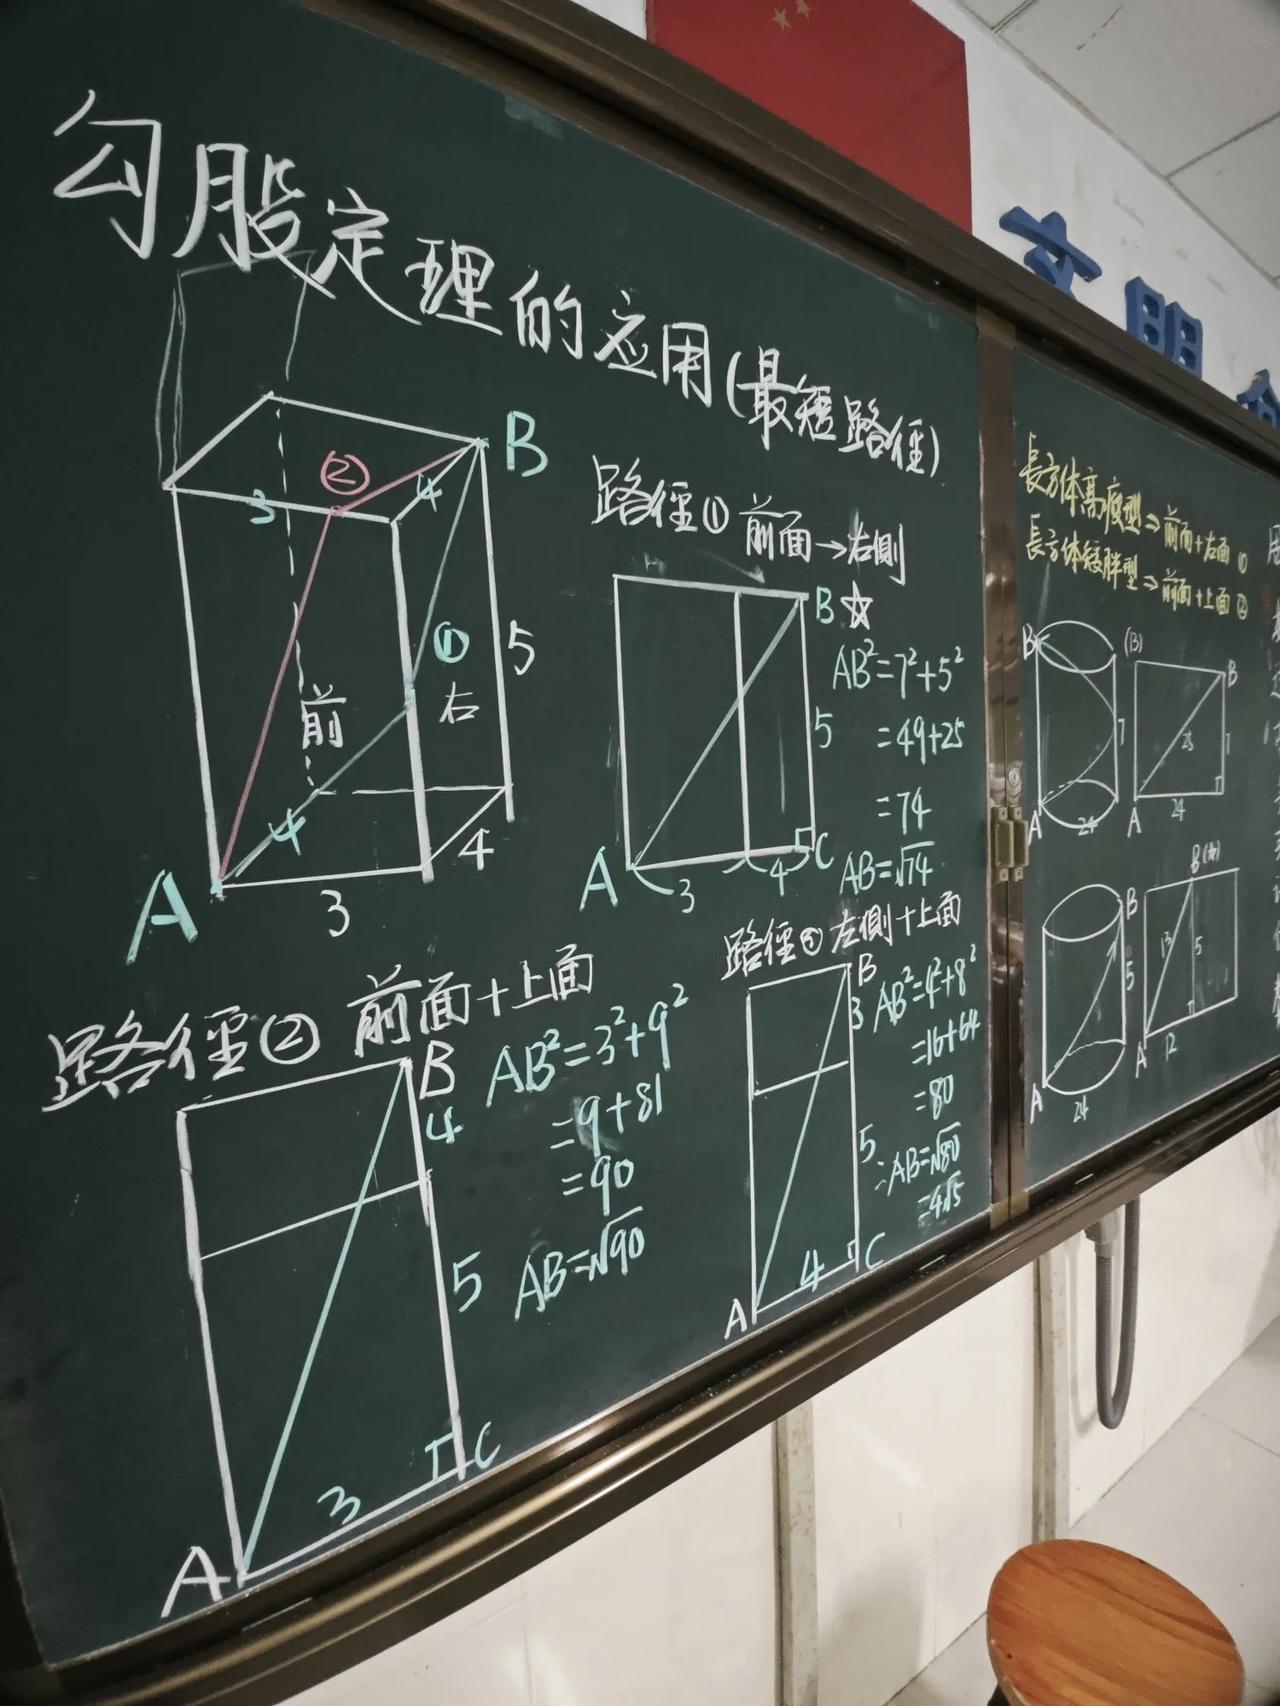 勾股定理的应用(最短路径)
B
②
3
4
①
5
前
右
4
4
3
A
路径① 前面→右侧
B ☆
5
A
3
4
C
AB²=7²+5²
=49+25
=74
AB=√74
路径② 前面+上面
B
4
5
C
3
A
AB²=3²+9²
=9+81
=90
AB=√90
路径③ 左侧+上面
B
3
5
4
C
A
AB²=4²+8²
=16+64
=80
∴AB=√80
=4√5
長方体高瘦型⇒前面+右面 ①
長方体矮胖型⇒前面+上面 ②
B
7
A
24
(B)
B
25
7
A
24
B
5
A
24
B
13
5
A
12
文明